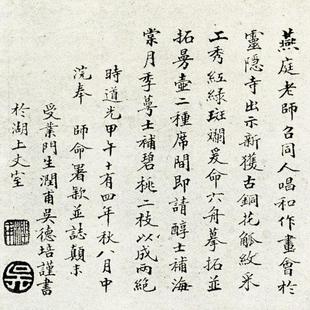 燕庭老師召同人唱和作畫會於
靈隱寺出示新獲古銅花觚紋采
工秀紅綠斑斕爰命六舟摹拓並
拓晏壺二種席間即請醇士補海
棠月季蕚士補碧桃二枝以成兩絕
時道光甲午十有四年秋八月中
浣奉 師命署款並誌顛末
受業門生潤甫吳德培謹書
於湖上丈室
吳